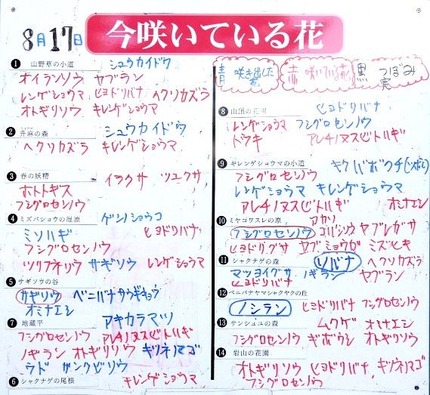 8月17日
今咲いている花
❶ 山野草の小道 シュウカイドウ
オイランソウ ヤブラン
レンゲショウマ ヒヨドリバナ ヘクソカズラ
オトギリソウ キレンゲショウマ
❷ 升麻の森 シュウカイドウ
ヘクソカズラ キレンゲショウマ
❸ 春の妖精 イラクサ ツユクサ
ホトトギス
フシグロセンノウ
❹ ミズバショウの湿原 ゲンノショウコ
ミソハギ ヒヨドリバナ
フシグロセンノウ
ツリフネソウ サギソウ レンゲショウマ
❺ サギソウの谷
サギソウ ベニバナサワギキョウ
オミナエシ
❼ 地蔵平 アキカラマツ
フシグロセンノウ アレチノヌスビトハギ
ノギラン オトギリソウ キツネノマゴ
ウド ガンクビソウ
❻ シャクナゲの尾根 キレンゲショウマ
青 咲き出した
赤 咲いている花
黒 つぼみ
❽ 山頂の花園 ヒヨドリバナ
レンゲショウマ フシグロセンノウ
アレチノヌスビトハギ
❾ キレンゲショウマの小道
フシグロセンノウ
レンゲショウマ キレンゲショウマ
アレチノヌスビトハギ
❿ ミヤコワスレの原
フシグロセンノウ ヤブレガサ
ヤブミョウガ ミズヒキ
⓫ シャクナゲの森 ソバナ ヘクソカズラ
マツヨイグサ ノギラン ヤブラン
ヒヨドリバナ
⓬ ベニバナヤマシャクヤクの丘
ノシラン ヒヨドリバナ フシグロセンノウ
⓭ サンシュユの森 ムクゲ オミナエシ
フシグロセンノウ ギボウシ オトギリソウ
⓮ 岩山の花園
オトギリソウ ヒヨドリバナ キツネノマゴ
フシグロセンノウ